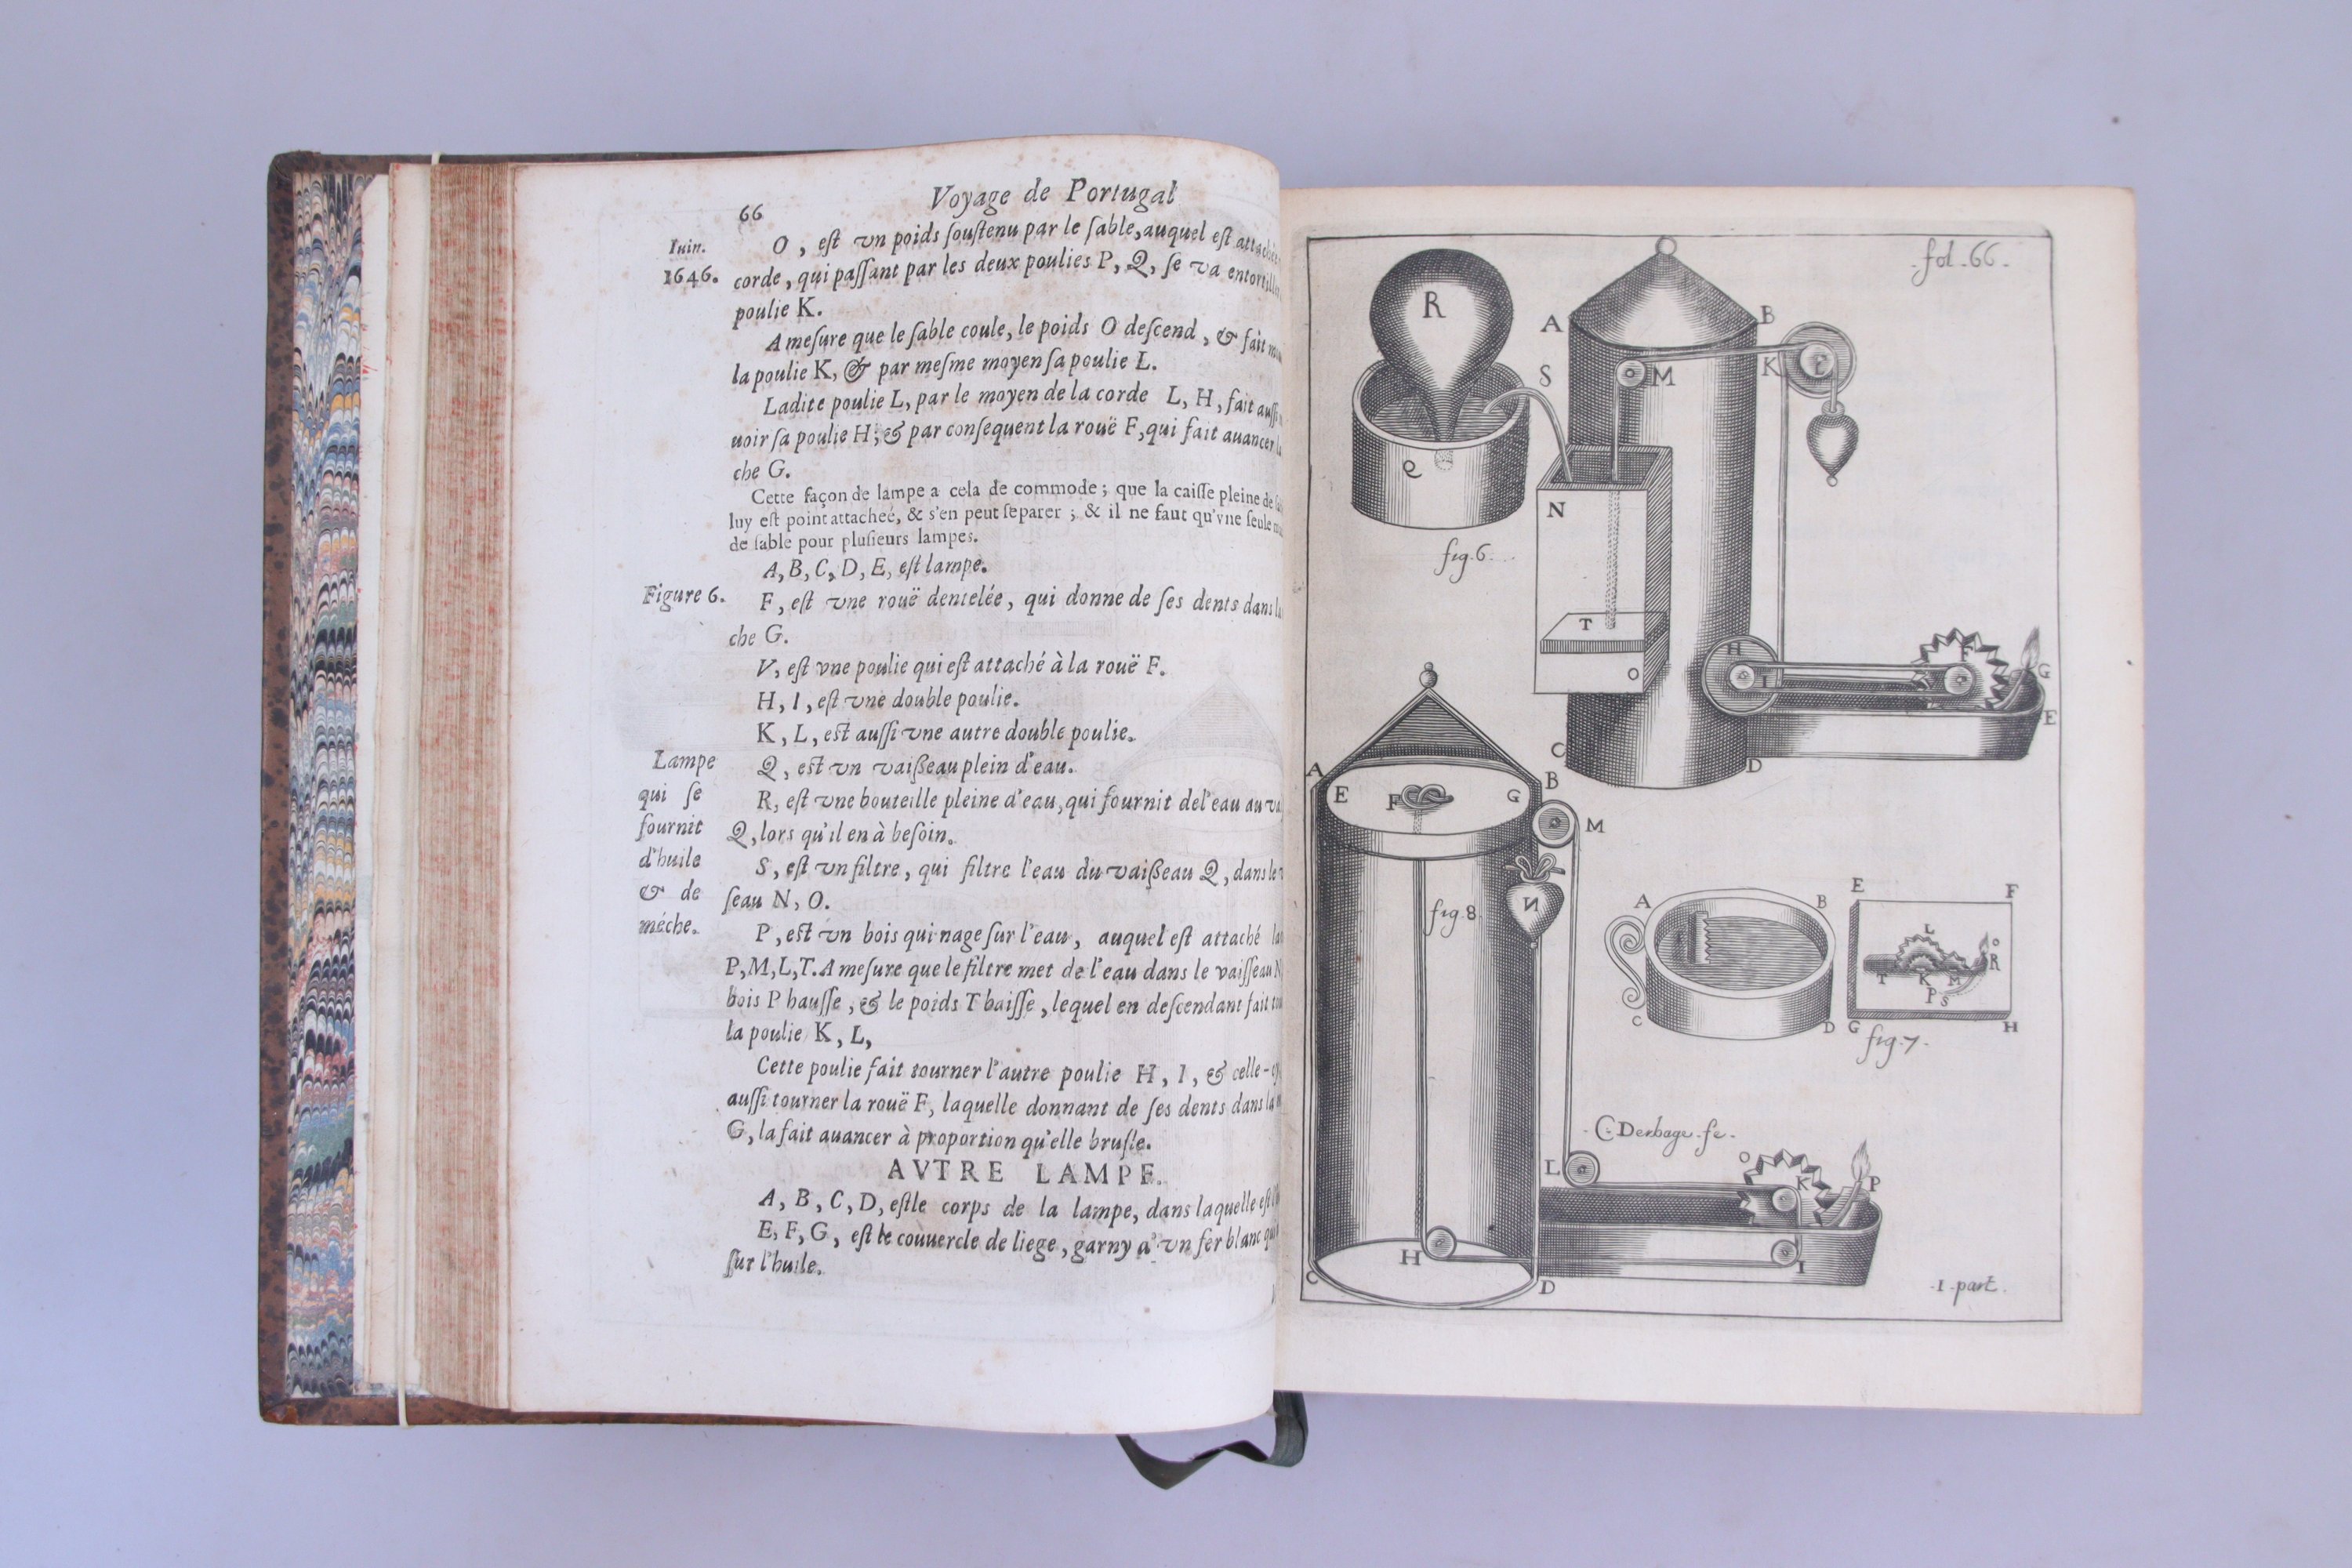 66 Voyage de Portugal
Iuin.
1646.
O, eſt vn poids ſouſtenu par le ſable, auquel eſt
corde, qui paſſant par les deux poulies P, Q, ſe va
poulie K.
A meſure que le ſable coule, le poids O deſcend, & fait
la poulie K, & par meſme moyen ſa poulie L.
Ladite poulie L, par le moyen de la corde L, H, fait
uoir ſa poulie H; & par conſequent la rouë F, qui fait auancer
che G.
Cette façon de lampe a cela de commode; que la caiſſe pleine de
luy eſt point attacheé, & s'en peut ſeparer; & il ne faut qu'vne ſeule
de ſable pour pluſieurs lampes.
A, B, C, D, E, eſt lampe.
Figure 6.
F, eſt vne rouë dentelée, qui donne de ſes dents dans
che G.
V, eſt vne poulie qui eſt attaché à la rouë F.
H, I, eſt vne double poulie.
K, L, eſt auſſi vne autre double poulie.
Lampe
qui ſe
fournit
d'huile
& de
méche.
Q, eſt vn vaißeau plein d'eau.
R, eſt vne bouteille pleine d'eau, qui fournit de l'eau au
Q, lors qu'il en à beſoin.
S, eſt vn filtre, qui filtre l'eau du vaißeau Q, dans le
ſeau N, O.
P, eſt vn bois qui nage ſur l'eau, auquel eſt attaché
P, M, L, T. A meſure que le filtre met de l'eau dans le vaiſſeau N
bois P hauſſe, & le poids T baiſſe, lequel en deſcendant fait
la poulie K, L,
Cette poulie fait tourner l'autre poulie H, I, & celle-
auſſi tourner la rouë F, laquelle donnant de ſes dents dans la
G, la fait auancer à proportion qu'elle bruſle.
AVTRE LAMPE.
A, B, C, D, eſt le corps de la lampe, dans laquelle eſt
E, F, G, eſt le couuercle de liege, garny d'vn fer blanc
ſur l'huile.
fol. 66.
R
A
B
S
M
K
L
Q
N
fig. 6.
T
O
H
I
F
G
E
C
D
A
B
E
F
G
M
N
fig. 8
A
B
C
D
E
F
L
O
R
T
K
M
P
S
G
H
fig. 7.
C. Derbage fe.
L
O
K
P
H
I
C
D
1. part.